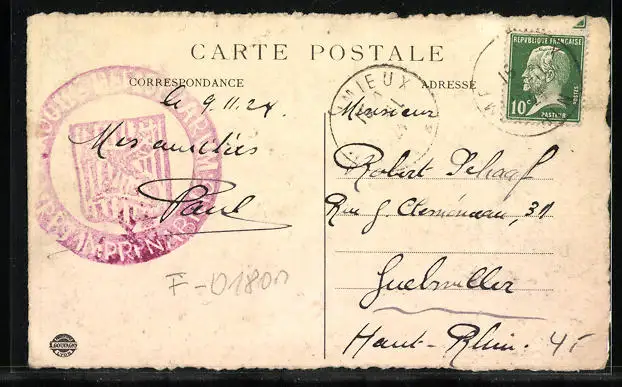 CARTE POSTALE
CORRESPONDANCE
le 9 11. 24
Mes amitiés
Paul
F-01800
ADRESSE
MIEUX
Monsieur
Robert
Rue G. Clémenceau, 31
Guebwiller
Haut-Rhin.
45
REPUBLIQUE FRANÇAISE
10c
POSTES
PASTEUR
LYON